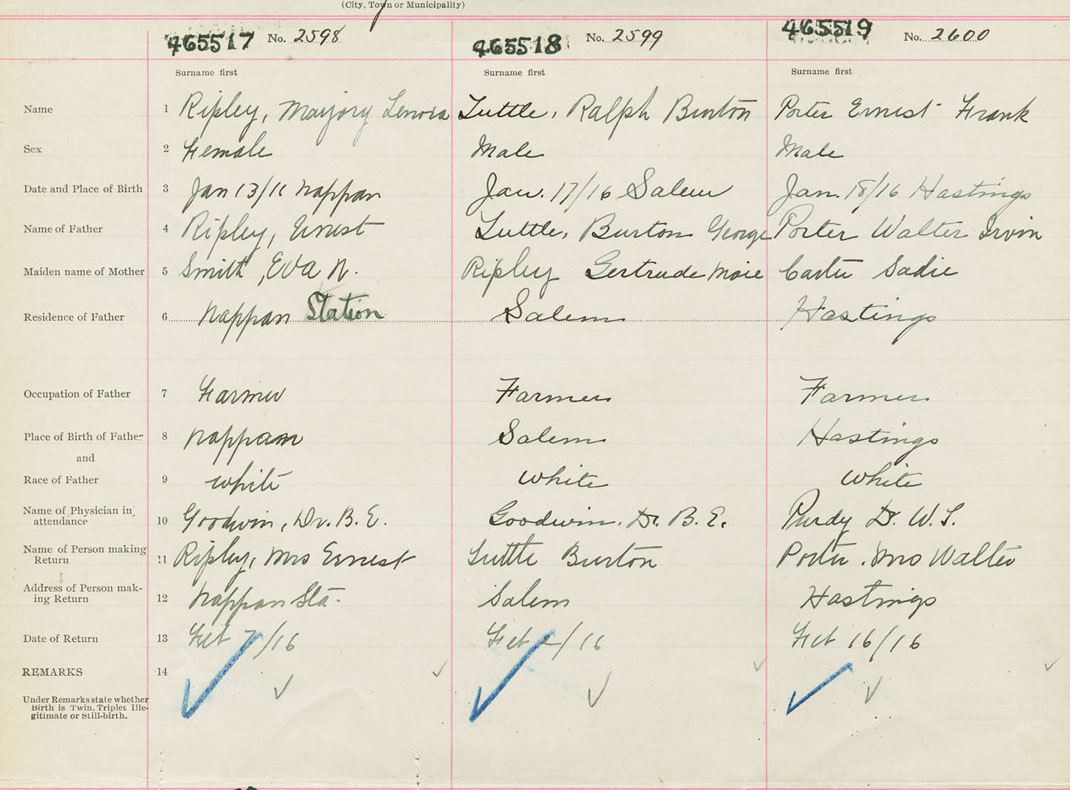 (City, Town or Municipality)
465517 No. 2598 465518 No. 2599 465519 No. 2600
Surname first Surname first Surname first
Name 1 Ripley, Marjory Lenora Tuttle, Ralph Burton Porter Ernest Frank
Sex 2 Female Male Male
Date and Place of Birth 3 Jan 13/16 Nappan Jan. 17/16 Salem Jan. 18/16 Hastings
Name of Father 4 Ripley, Ernest Tuttle, Burton George Porter Walter Irvin
Maiden name of Mother 5 Smith, Eva N. Ripley Gertrude Carter Sadie
Residence of Father 6 Nappan Station Salem Hastings
Occupation of Father 7 Farmer Farmer Farmer
Place of Birth of Father 8 Nappan Salem Hastings
and
Race of Father 9 White White White
Name of Physician in 10 Goodwin, Dr. B. E. Goodwin, Dr. B. E. Purdy Dr. W. S.
attendance
Name of Person making 11 Ripley, Mrs Ernest Tuttle Burton Porter, Mrs Walter
Return
Address of Person mak-
ing Return 12 Nappan Sta. Salem Hastings
Date of Return 13 Feb 7/16 Feb 2/16 Feb 16/16
REMARKS 14
Under Remarks state whether
Birth is Twin, Triplet Ille-
gitimate or Still-birth.